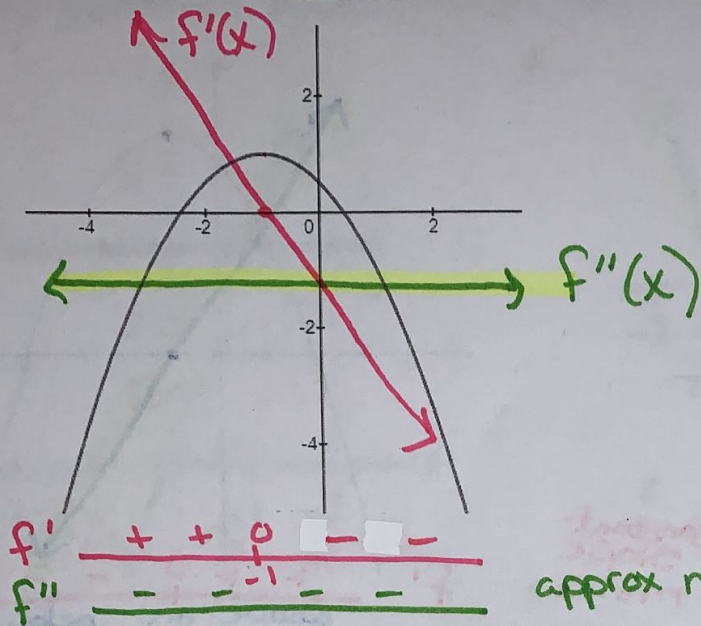 f'(x)
2
-4 -2 0 2
f''(x)
-2
-4
f' + + 0 - -
-1
f'' - - - -
approx